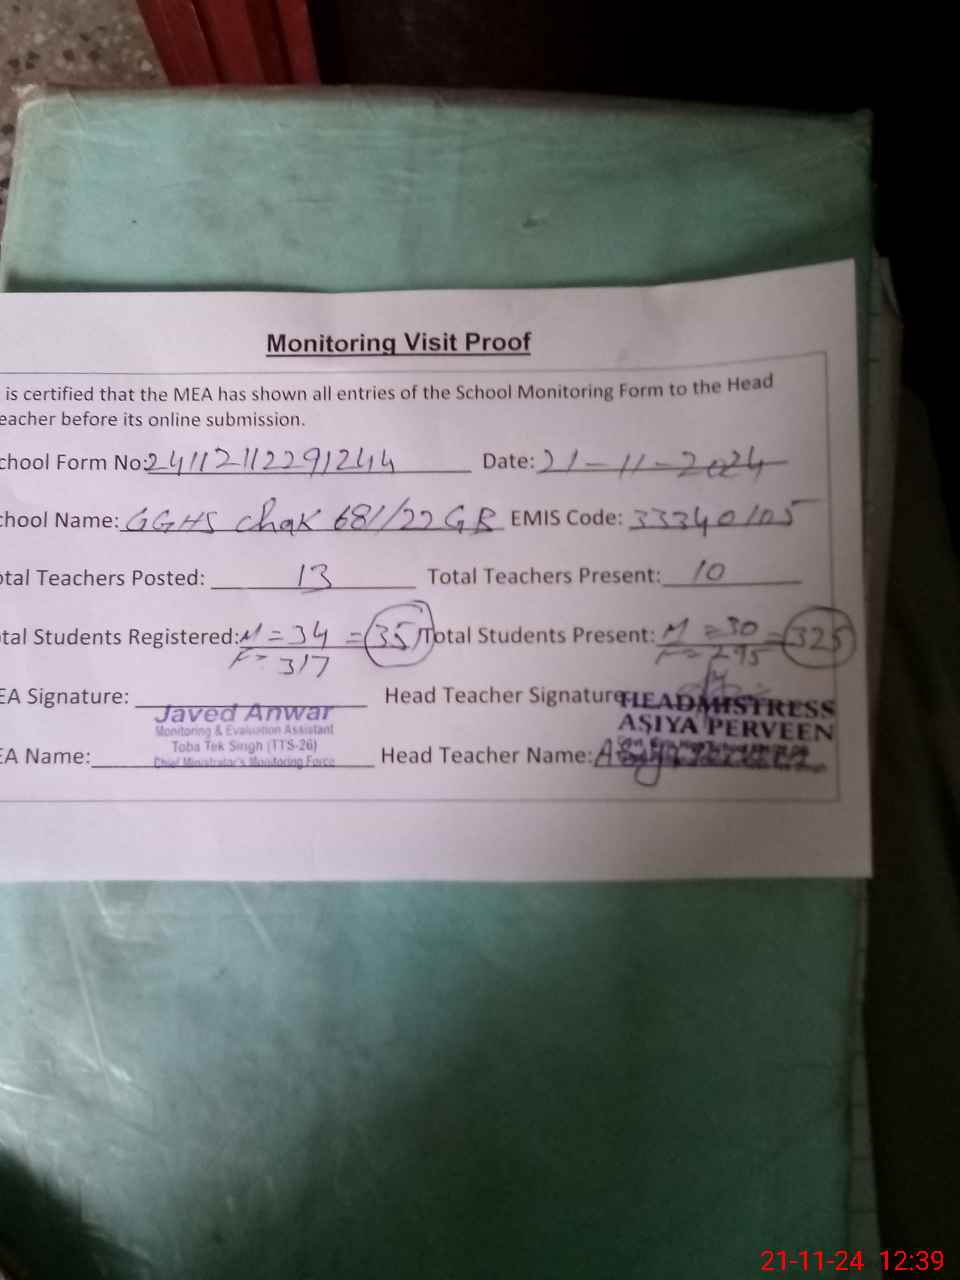 Monitoring Visit Proof
is certified that the MEA has shown all entries of the School Monitoring Form to the Head
eacher before its online submission.
chool Form No: 24112112291244 Date: 21-11-2024
chool Name: GGHS Chak 681/22 GB EMIS Code: 33340105
otal Teachers Posted: 13 Total Teachers Present: 10
otal Students Registered: M = 34 = 351 Total Students Present: M = 30 = 325
F = 317 F = 295
EA Signature: Head Teacher Signature
Javed Anwar HEADMISTRESS
Monitoring & Evaluation Assistant ASIYA PERVEEN
Toba Tek Singh (TTS-26)
EA Name: Chief Ministrator's Monitoring Force Head Teacher Name:
21-11-24 12:39